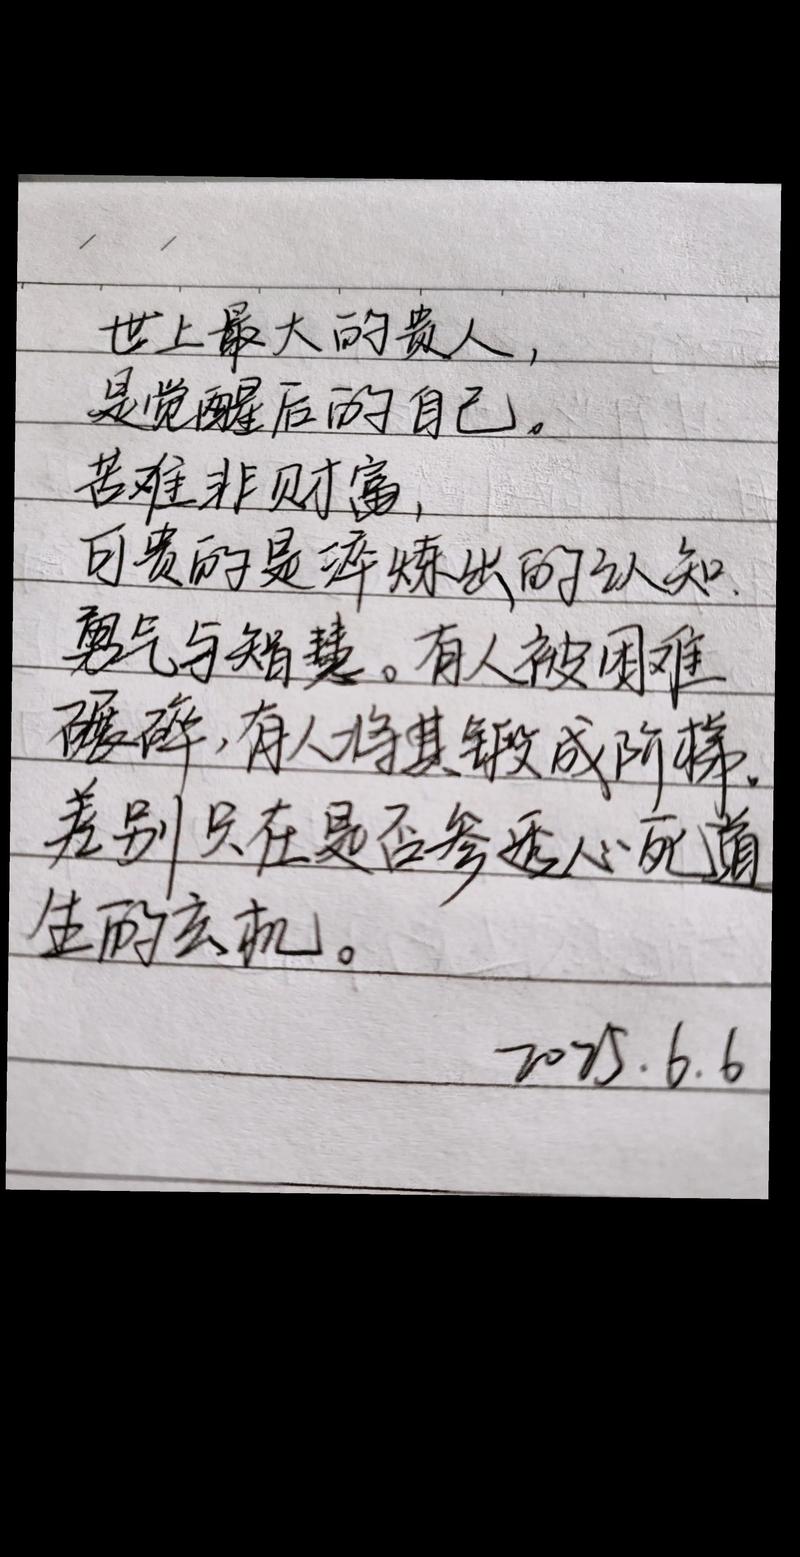 世上最大的贵人，
是觉醒后的自己。
苦难非财富，
可贵的是淬炼出的认知、
勇气与智慧。有人被困难
碾碎，有人将其锻成阶梯。
差别只在是否参透心死道
生的玄机。
2025.6.6